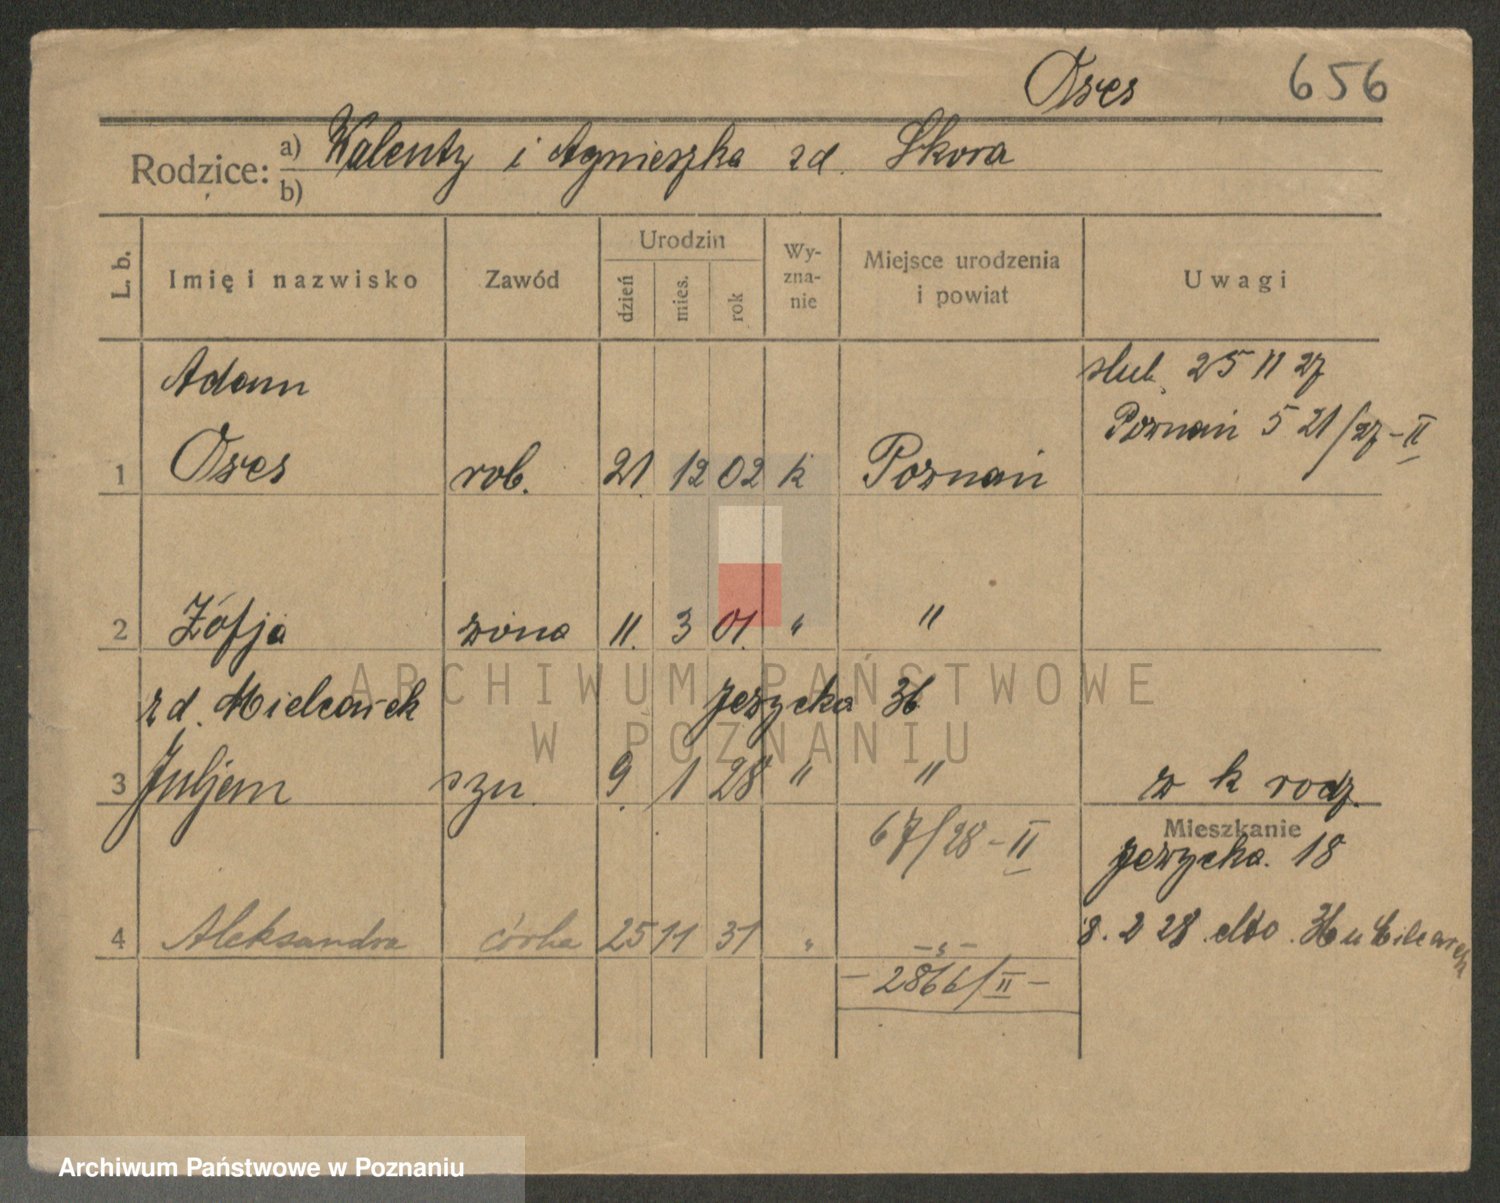 Oses 656
Rodzice: a) Walenty i Agnieszka zd. Skora
b)
L. b. Imię i nazwisko Zawód Urodzin dzień mies. rok Wyznanie Miejsce urodzenia i powiat Uwagi
Adam ślub. 25 11 27
Poznań 5 21/27-II
1 Oses rob. 21. 12 02 k Poznań
2 Zofja żona 11. 3 01. " "
zd. Mielcarek Jeżycka 36
3 Juljan syn 9. 1 28 " " z k rodz.
67/28-II Mieszkanie
Jeżycka. 18
4 Aleksandra córka 25 11 31 " -"-
8. 2 28 dto. 36 u Mielcarek
-2866/II-
ARCHIWUM PAŃSTWOWE
W POZNANIU
Archiwum Państwowe w Poznaniu